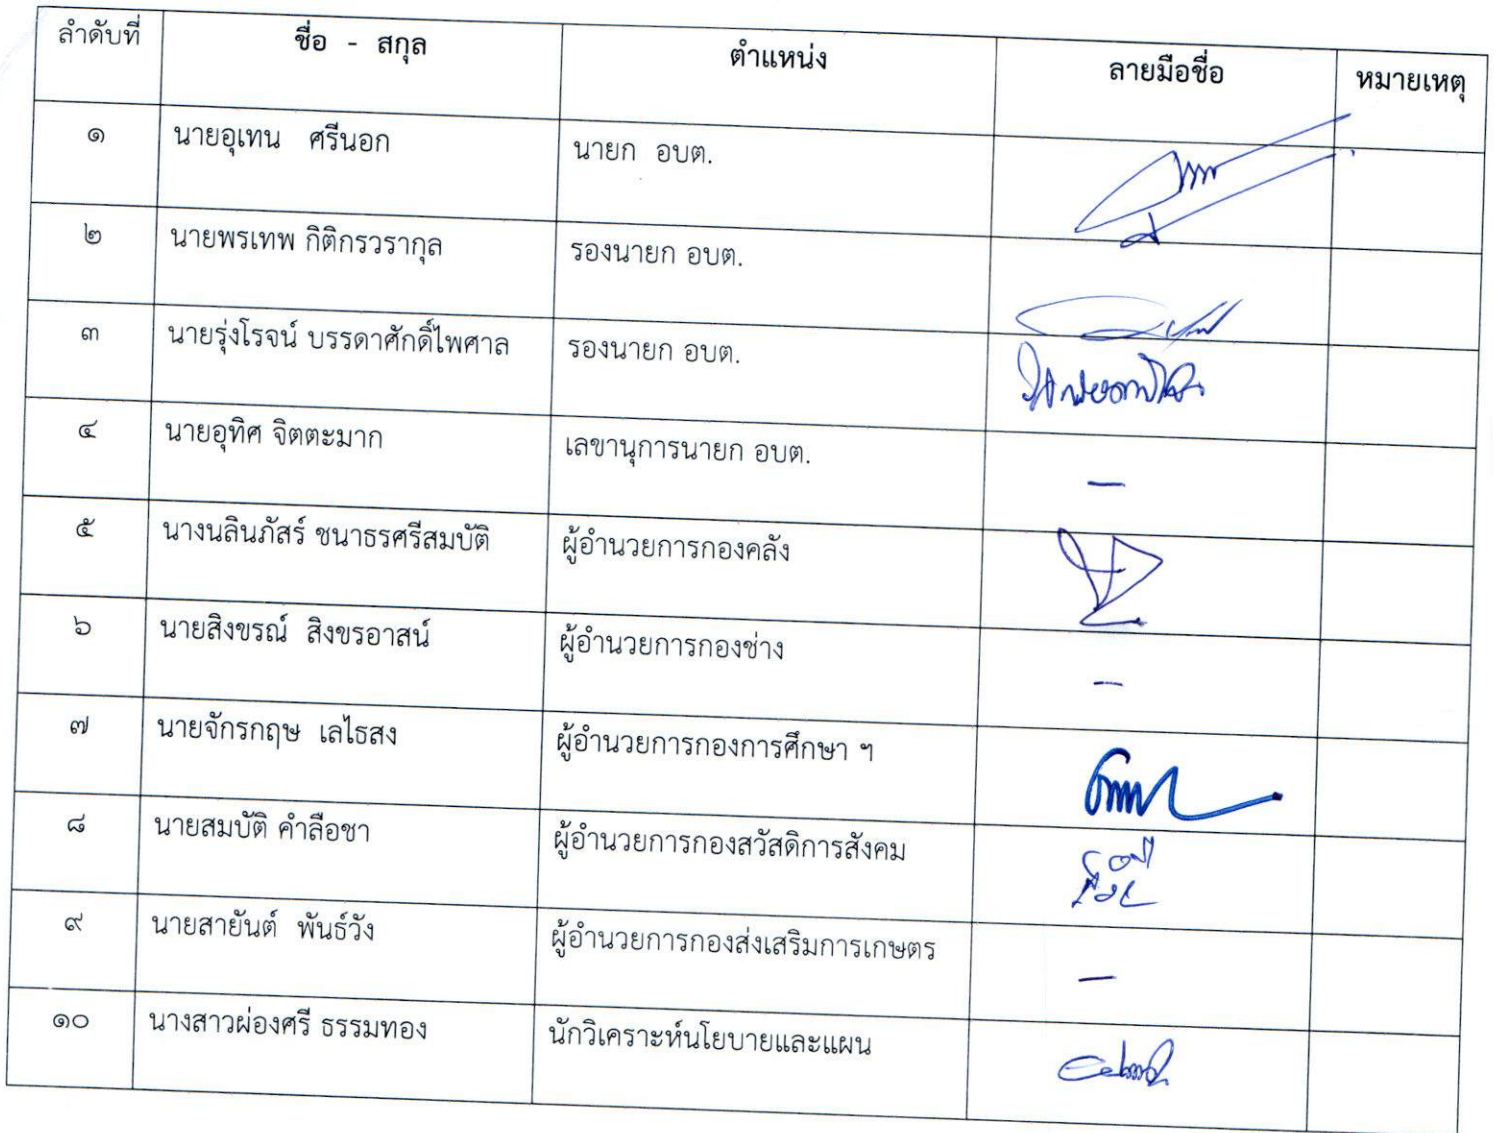 ลำดับที่ ชื่อ - สกุล ตำแหน่ง ลายมือชื่อ หมายเหตุ
๑ นายอุเทน ศรีนอก นายก อบต.
๒ นายพรเทพ กิติกรวรากุล รองนายก อบต.
๓ นายรุ่งโรจน์ บรรดาศักดิ์ไพศาล รองนายก อบต.
๔ นายอุทิศ จิตตะมาก เลขานุการนายก อบต. –
๕ นางนลินภัสร์ ชนาธรศรีสมบัติ ผู้อำนวยการกองคลัง
๖ นายสิงขรณ์ สิงขรอาสน์ ผู้อำนวยการกองช่าง –
๗ นายจักรกฤษ เลไธสง ผู้อำนวยการกองการศึกษา ฯ
๘ นายสมบัติ คำลือชา ผู้อำนวยการกองสวัสดิการสังคม
๙ นายสายันต์ พันธ์วัง ผู้อำนวยการกองส่งเสริมการเกษตร –
๑๐ นางสาวผ่องศรี ธรรมทอง นักวิเคราะห์นโยบายและแผน